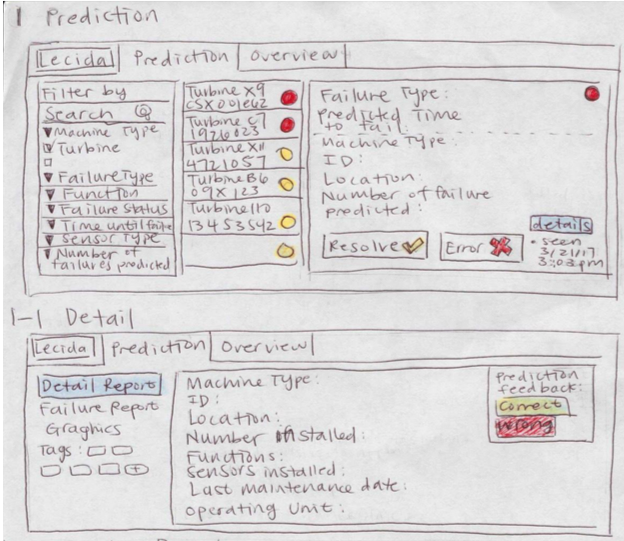 1 Prediction
Lecida Prediction Overview
Filter by
Search
Machine Type
Turbine
Failure Type
Function
Failure Status
Time until failure
Sensor Type
Number of
failures predicted
Turbine X9
CSX001E62
Turbine C7
1926023
Turbine X11
4721057
Turbine B6
09X123
Turbine 110
13453542
Failure Type:
Predicted Time
to fail:
Machine Type:
ID:
Location:
Number of failure
predicted:
details
Resolve
Error
• seen
3/21/17
3:03pm
1-1 Detail
Lecida Prediction Overview
Detail Report
Failure Report
Graghics
Tags:
Machine Type:
ID:
Location:
Number installed:
Functions:
Sensors installed:
Last maintenance date:
Operating Unit:
Prediction
feedback:
Correct
Wrong